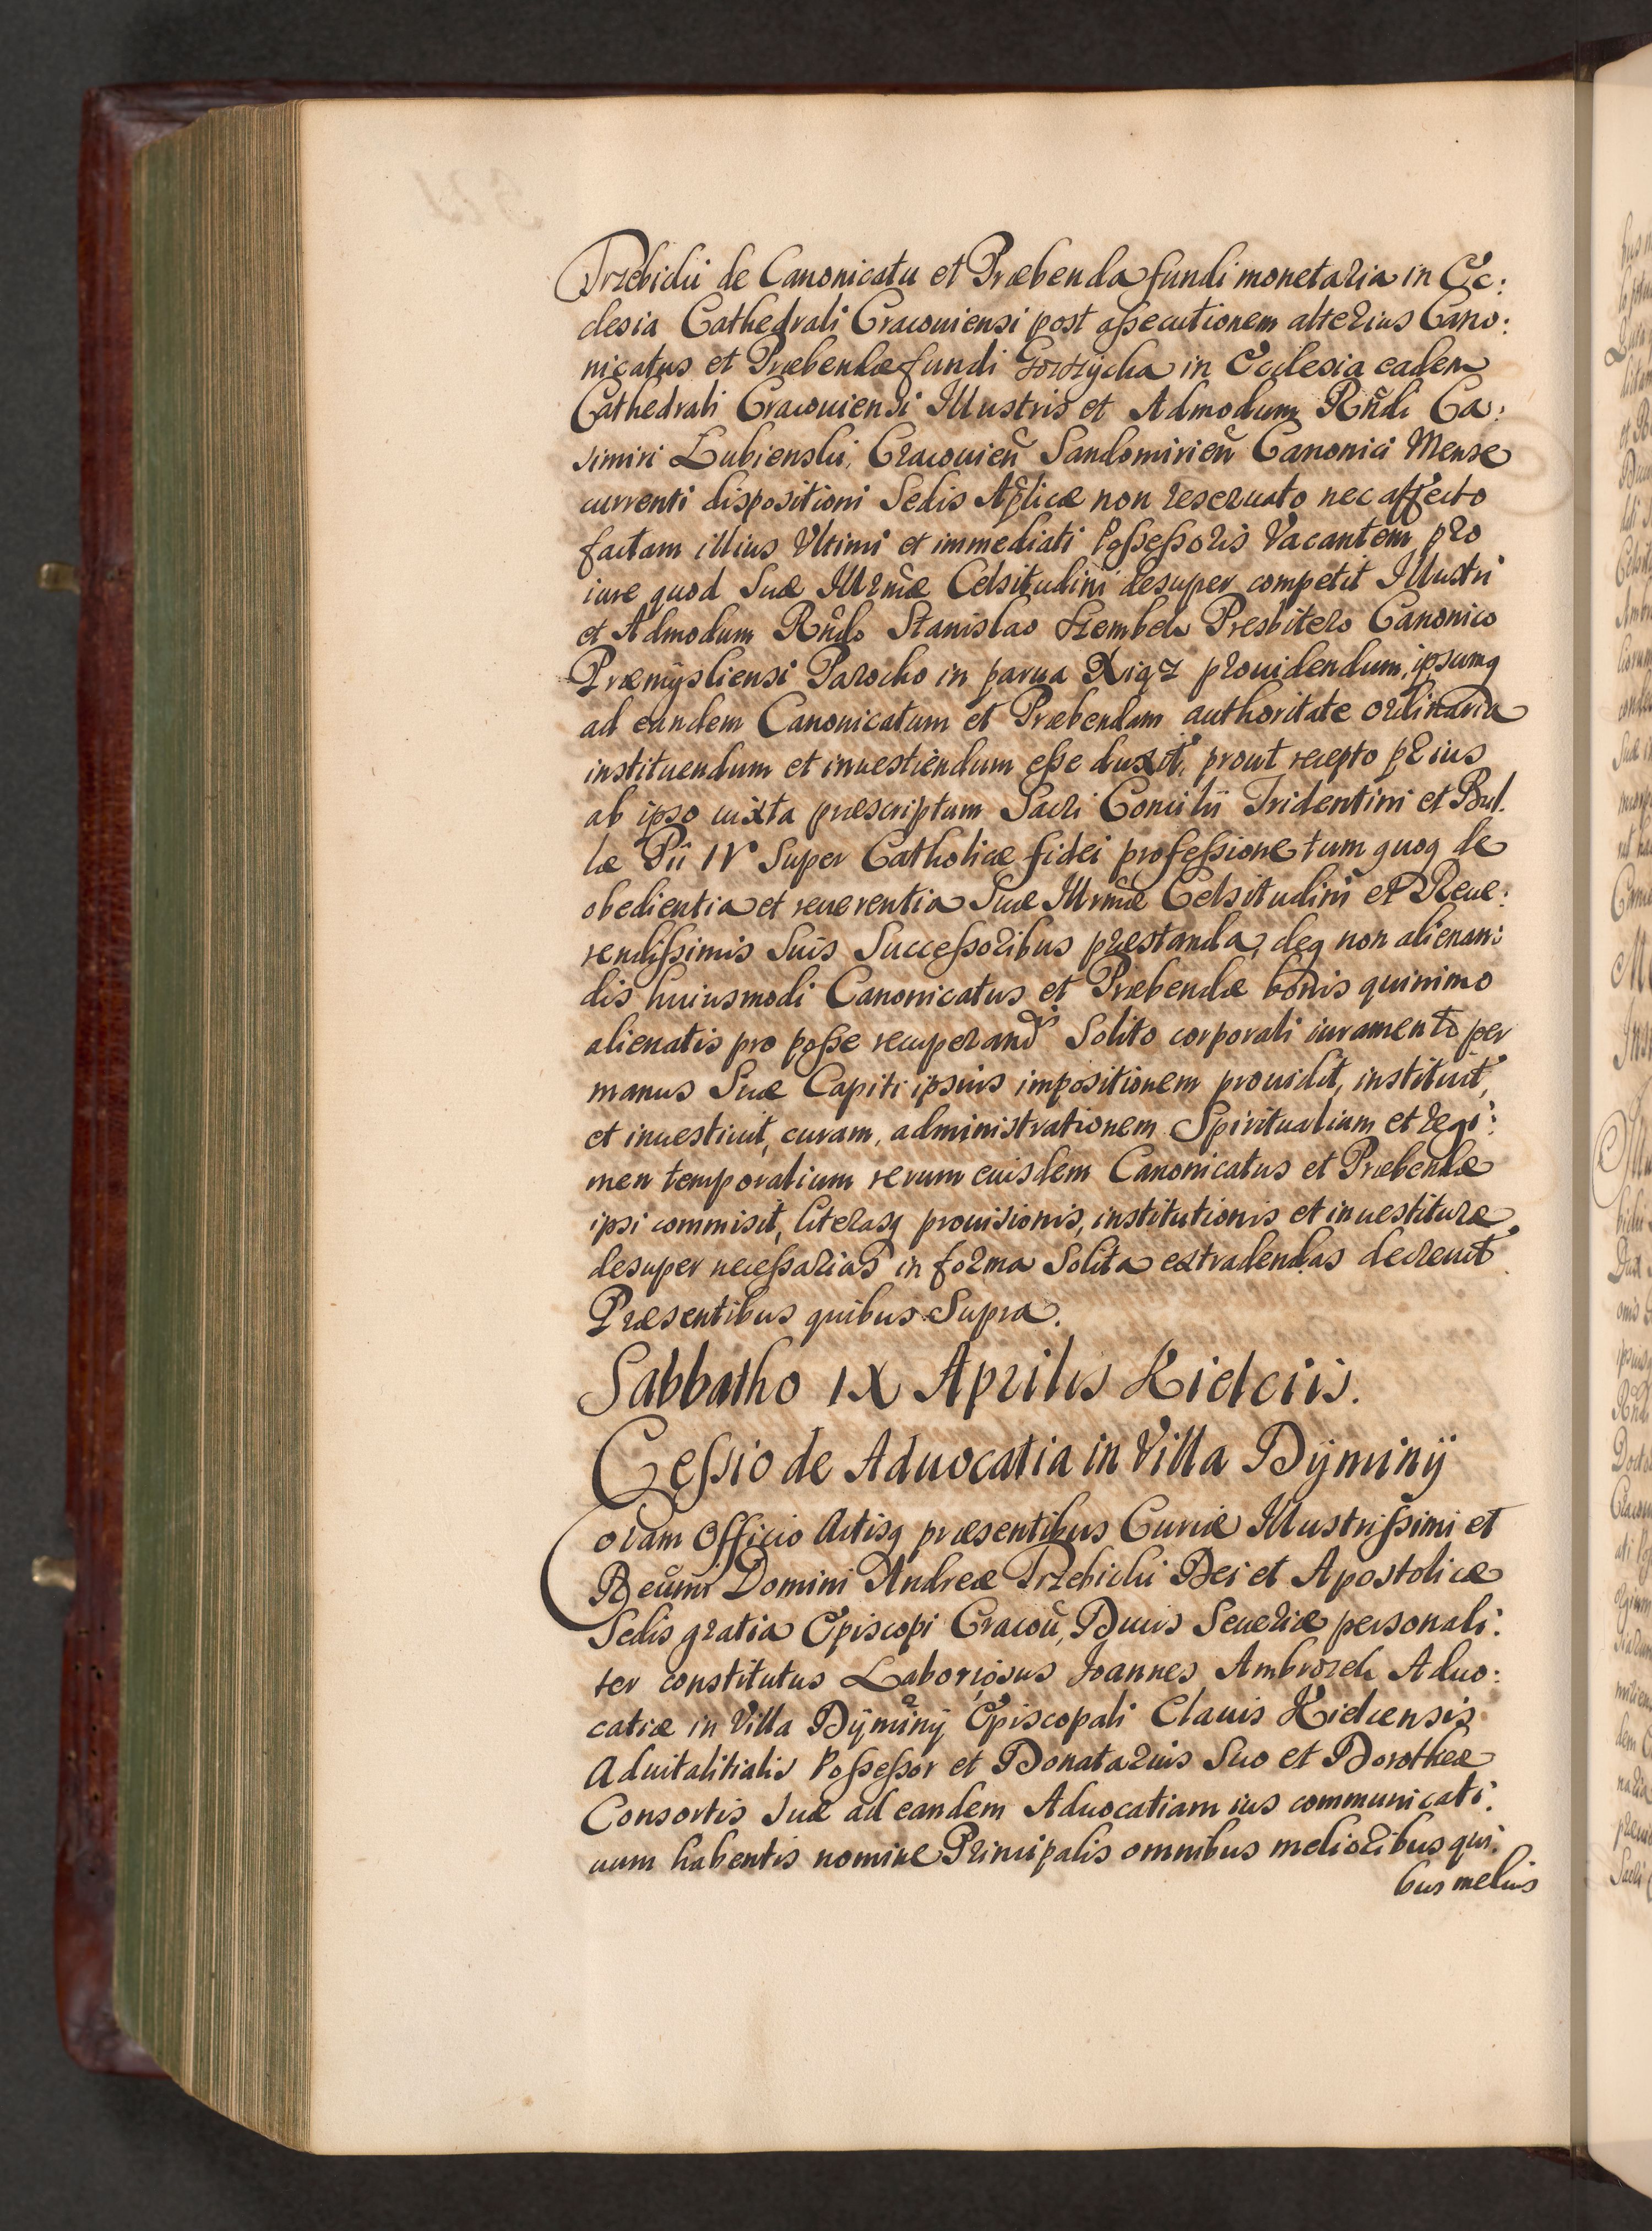 Trzebicki de Canonicatu et Præbenda fundi monetaria in Ec:
clesia Cathedrali Cracouiensi post assecutionem alterius Cano:
nicatus et Præbendæ fundi in Ecclesia eadem
Cathedrali Cracouiensi Illustris et Admodum Rñdi Ca:
simiri Łubienski, Cracouieñ Sandomirieñ Canonici Mense
currenti dispositioni Sedis Aplicæ non reseruato nec affecto
factam illius Vltimi et immediati Possessoris Vacantem pro
iure quod Suæ Illrmæ Celsitudini desuper competit Illustri
et Admodum Rñdo Stanislao Szembek Presbitero Canonico
Præmysliensi Parocho in parua Xiąz prouidendum, ipsumq
ad eandem Canonicatum et Præbendam authoritate ordinaria
instituendum et inuestiendum esse duxit, prout recepto prius
ab ipso iuxta præscriptum Sacri Concilii Tridentini et Bul.
læ Pii IV Super Catholicæ fidei professione tum quoq de
obedientia et reuerentia Suæ Illrmæ Celsitudini et Reue:
rendissimis Suis Successoribus præstanda, deq non alienan:
dis huiusmodi Canonicatus et Præbendæ bonis quinimo
alienatis pro posse recuperand Solito corporali iuramento per
manus Suæ Capiti ipsius impositionem prouidit, instituit,
et inuestiuit, curam, administrationem Spiritualium et regi:
men temporalium rerum eiusdem Canonicatus et Præbendæ
ipsi commisit, literasq prouisionis, institutionis et inuestituræ
desuper necessarias in forma Solita extradendas decreuit.
Præsentibus quibus Supra.
Sabbatho IX Aprilis Kielciis.
Cessio de Aduocatia in Villa Dÿminÿ
Coram Officio Actisq præsentibus Curiæ Illustrissimi et
Reũmi Domini Andreæ Trzebicki Dei et Apostolicæ
Sedis gratia Episcopi Cracoũ, Ducis Seueriæ personali:
ter constitutus Laboriosus Joannes Ambrozek Aduo:
catiæ in Villa Dÿminÿ Episcopali Clauis Kielcensis
Aduitalitialis Possessor et Donatarius Suo et Dorotheæ
Consortis Suæ ad eandem Aduocatiam ius communicati:
uum habentis nomine Principalis omnibus melioribus qui:
bus melius